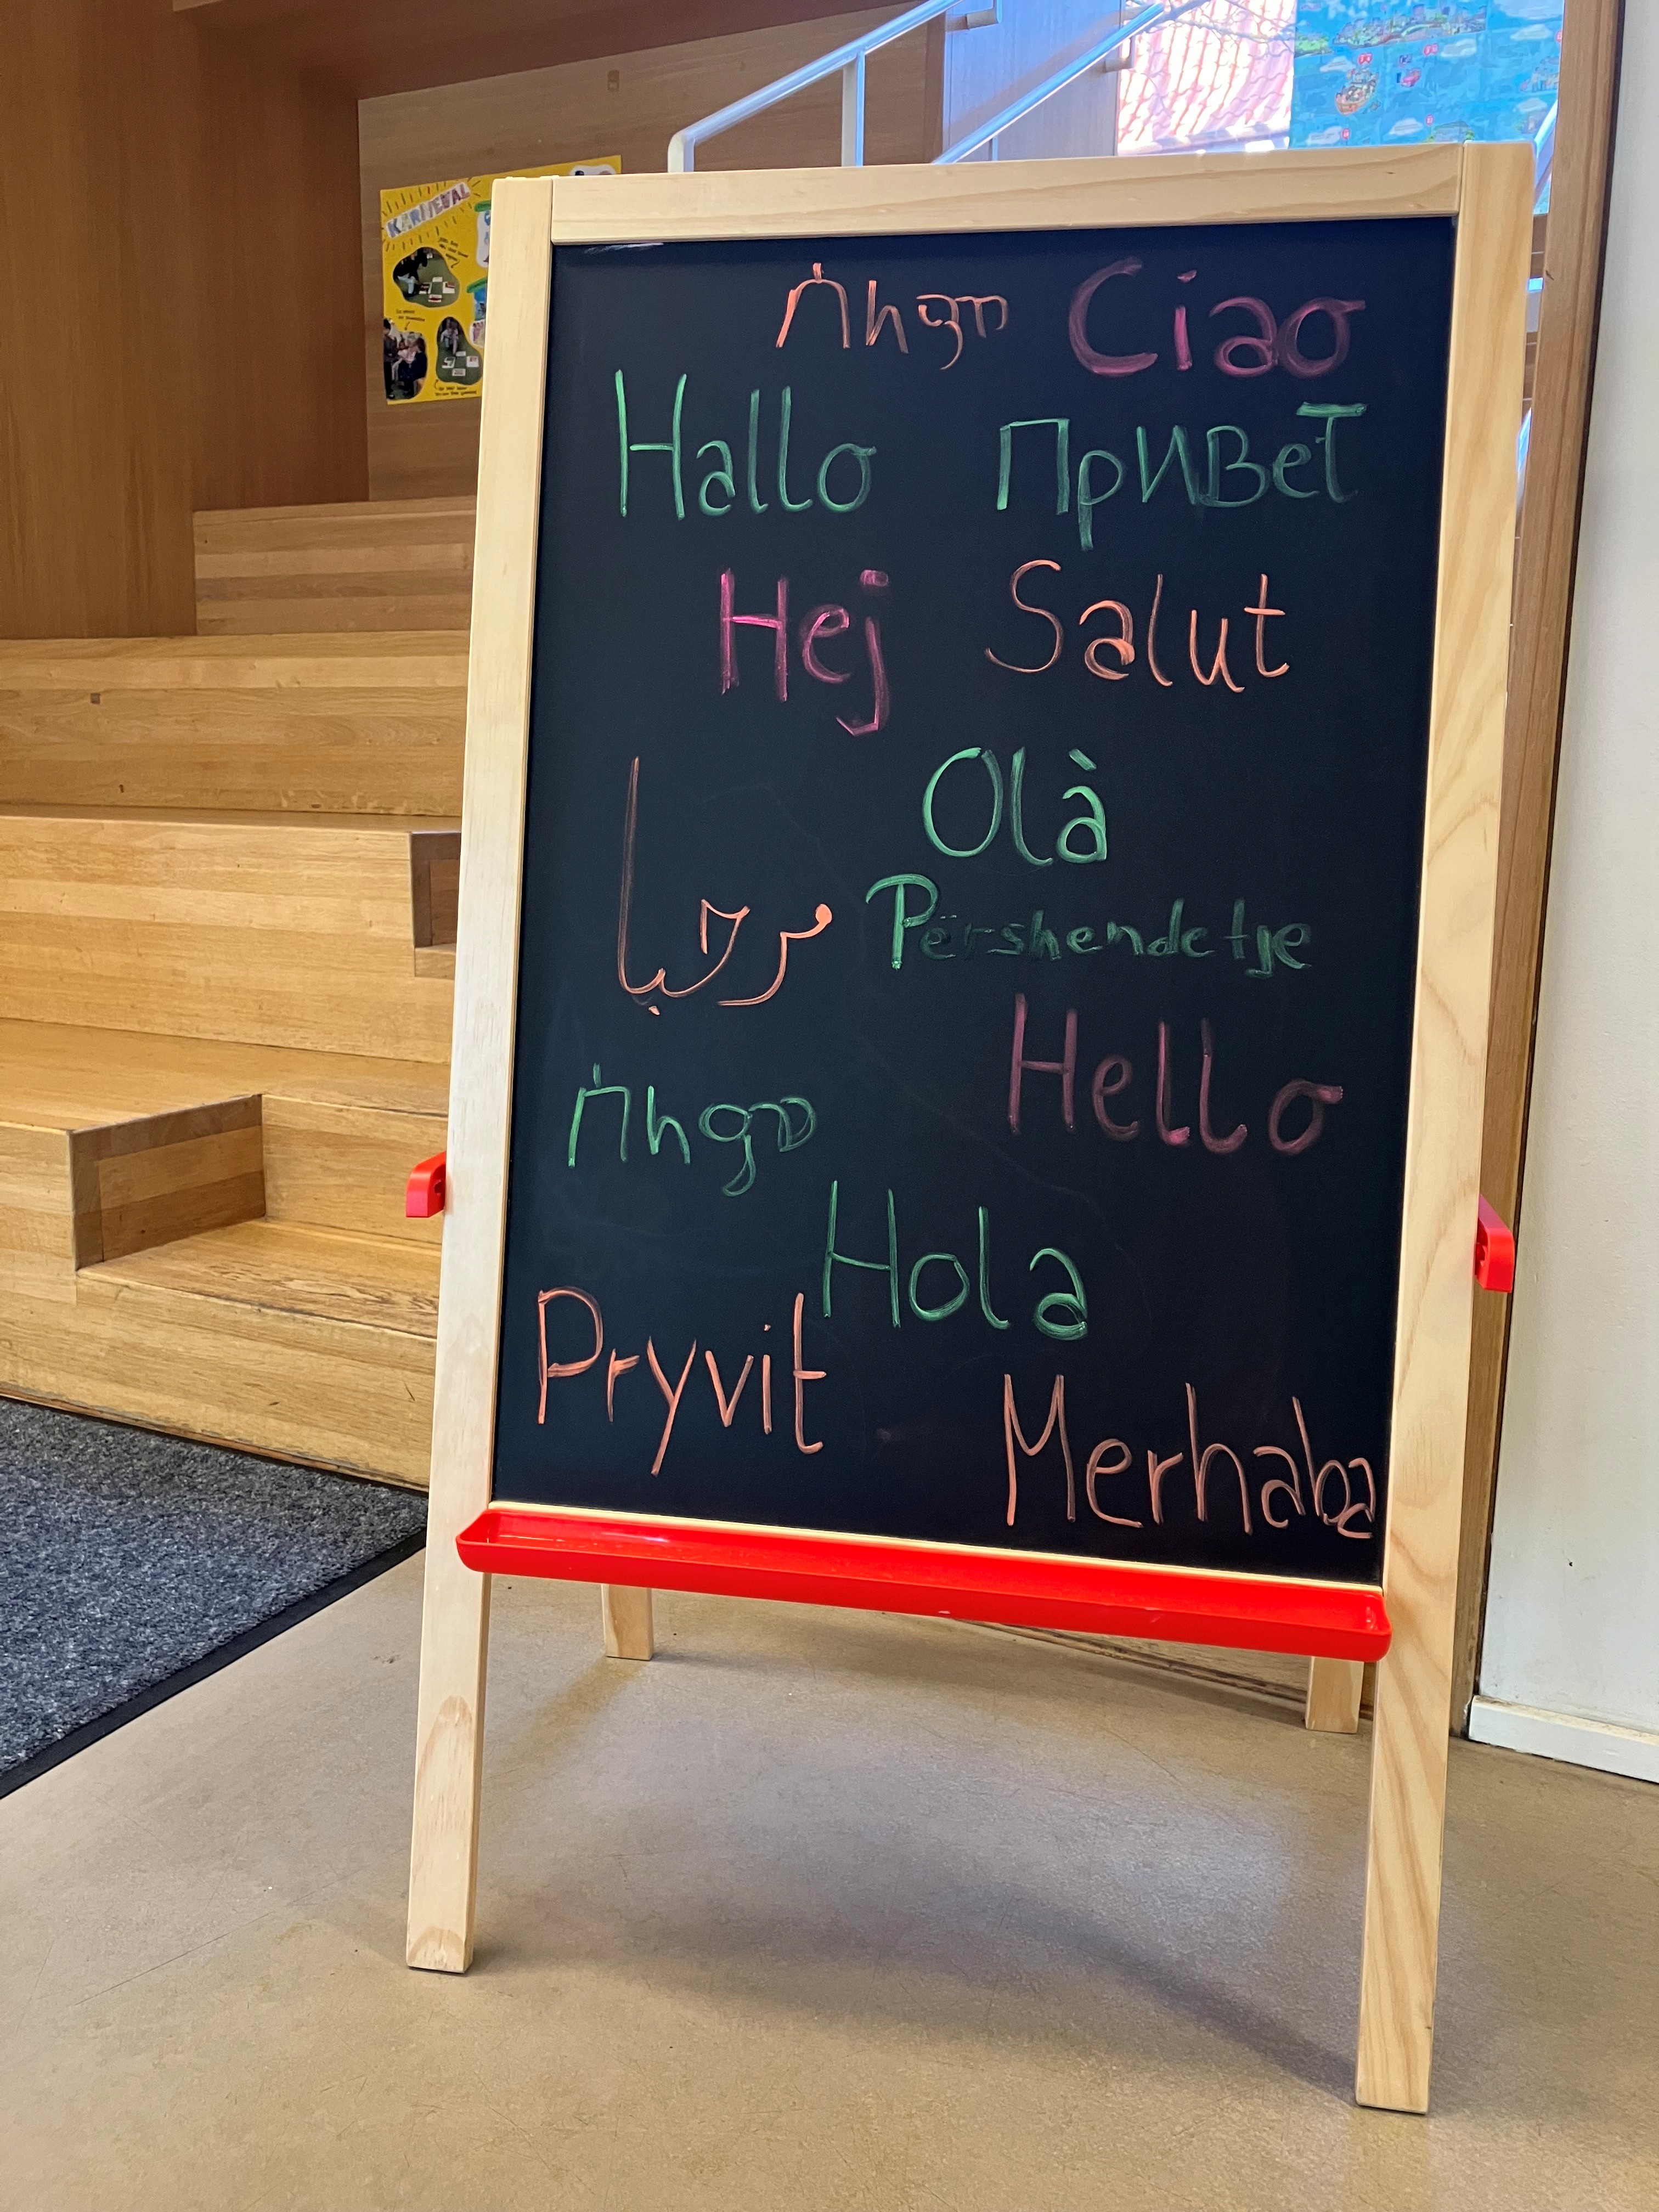 KARNEVAL
Ciao
Hallo Привет
Hej Salut
Olà
مرحبا Përshendetje
Hello
Hola
Pryvit
Merhaba